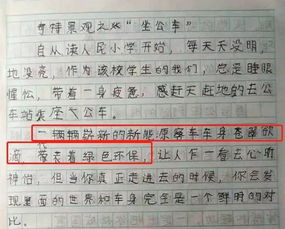 奇特景观之"坐公车"
自从读人民小学开始，每天天没明，
地没亮，作为该校学生的我们，总是睡眼
惺忪，带着一身疲惫，感赶天赶地的去公
车站乘座气公车。
一辆辆崭新的新能源客车车身
滴，带表着绿色环保，让人乍一看去心旷
神怡，但当你真正走进去的时候，你会发
现里面的世界和车身完全是一个鲜明的对
比。